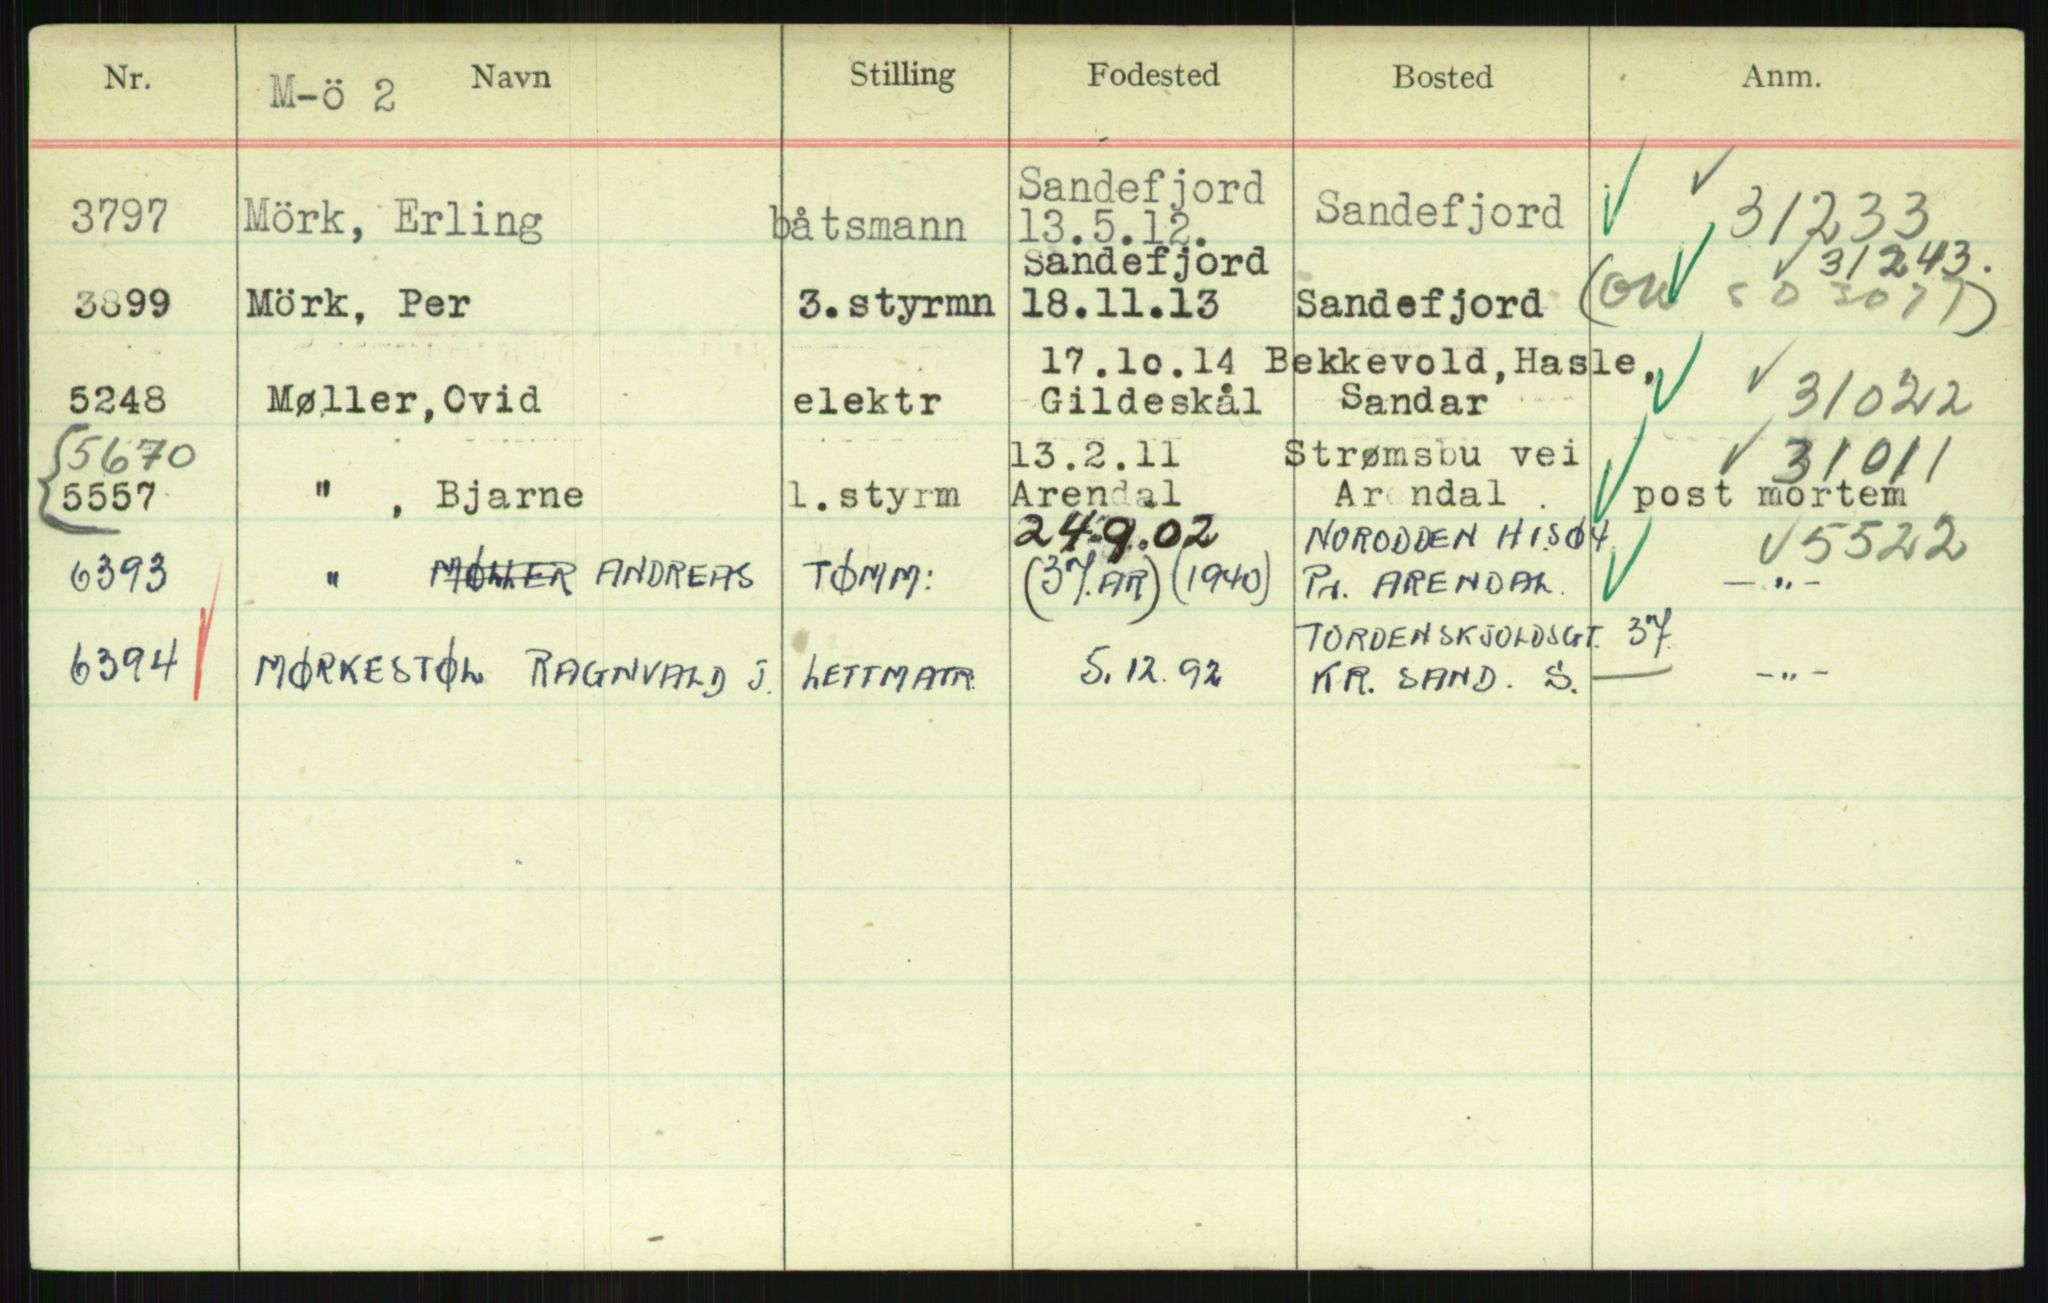 Nr. M-ö 2 Navn Stilling Fodested Bosted Anm.
Sandefjord
3797 Mörk, Erling båtsmann 13.5.12. Sandefjord 31233
Sandefjord 31243.
3899 Mörk, Per 3.styrmn 18.11.13 Sandefjord
17.10.14 Bekkevold,Hasle,
5248 Møller,Ovid elektr Gildeskål Sandar 31022
5670 13.2.11 Strømsbu vei 31011
5557 " , Bjarne 1.styrm Arendal Arendal . post mortem
24.9.02 NORODDEN HISØY 5522
6393 " MØLLER ANDREAS TØMM: (37.AR) (1940) Pr. ARENDAL. -"-
TORDENSKJOLDSGT. 37.
6394 MØRKESTØL RAGNVALD J. LETTMATR. 5.12.92 KR. SAND. S. -"-